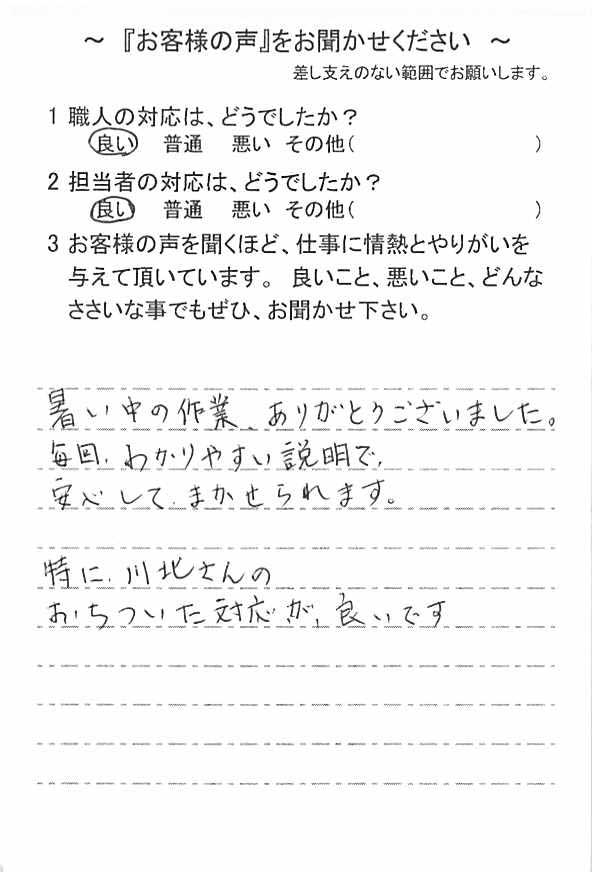 ～ 『お客様の声』をお聞かせください ～
差し支えのない範囲でお願いします。
1 職人の対応は、どうでしたか？
良い 普通 悪い その他( )
2 担当者の対応は、どうでしたか？
良い 普通 悪い その他( )
3 お客様の声を聞くほど、仕事に情熱とやりがいを
与えて頂いています。 良いこと、悪いこと、どんな
ささいな事でもぜひ、お聞かせ下さい。
暑い中の作業、ありがとうございました。
毎回、わかりやすい説明で、
安心して、まかせられます。
特に、川北さんの
おちついた対応が、良いです